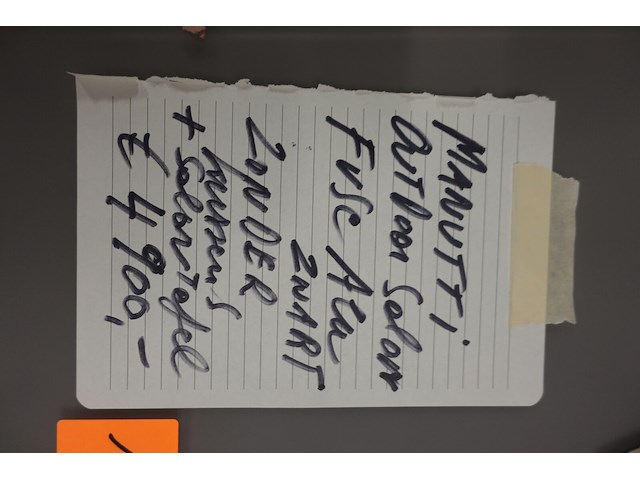 MANUTTI
OUTDOOR Salon
FUSE ALU
ZWART
ZONDER
kussens
+ Salontafel
€ 4900,-